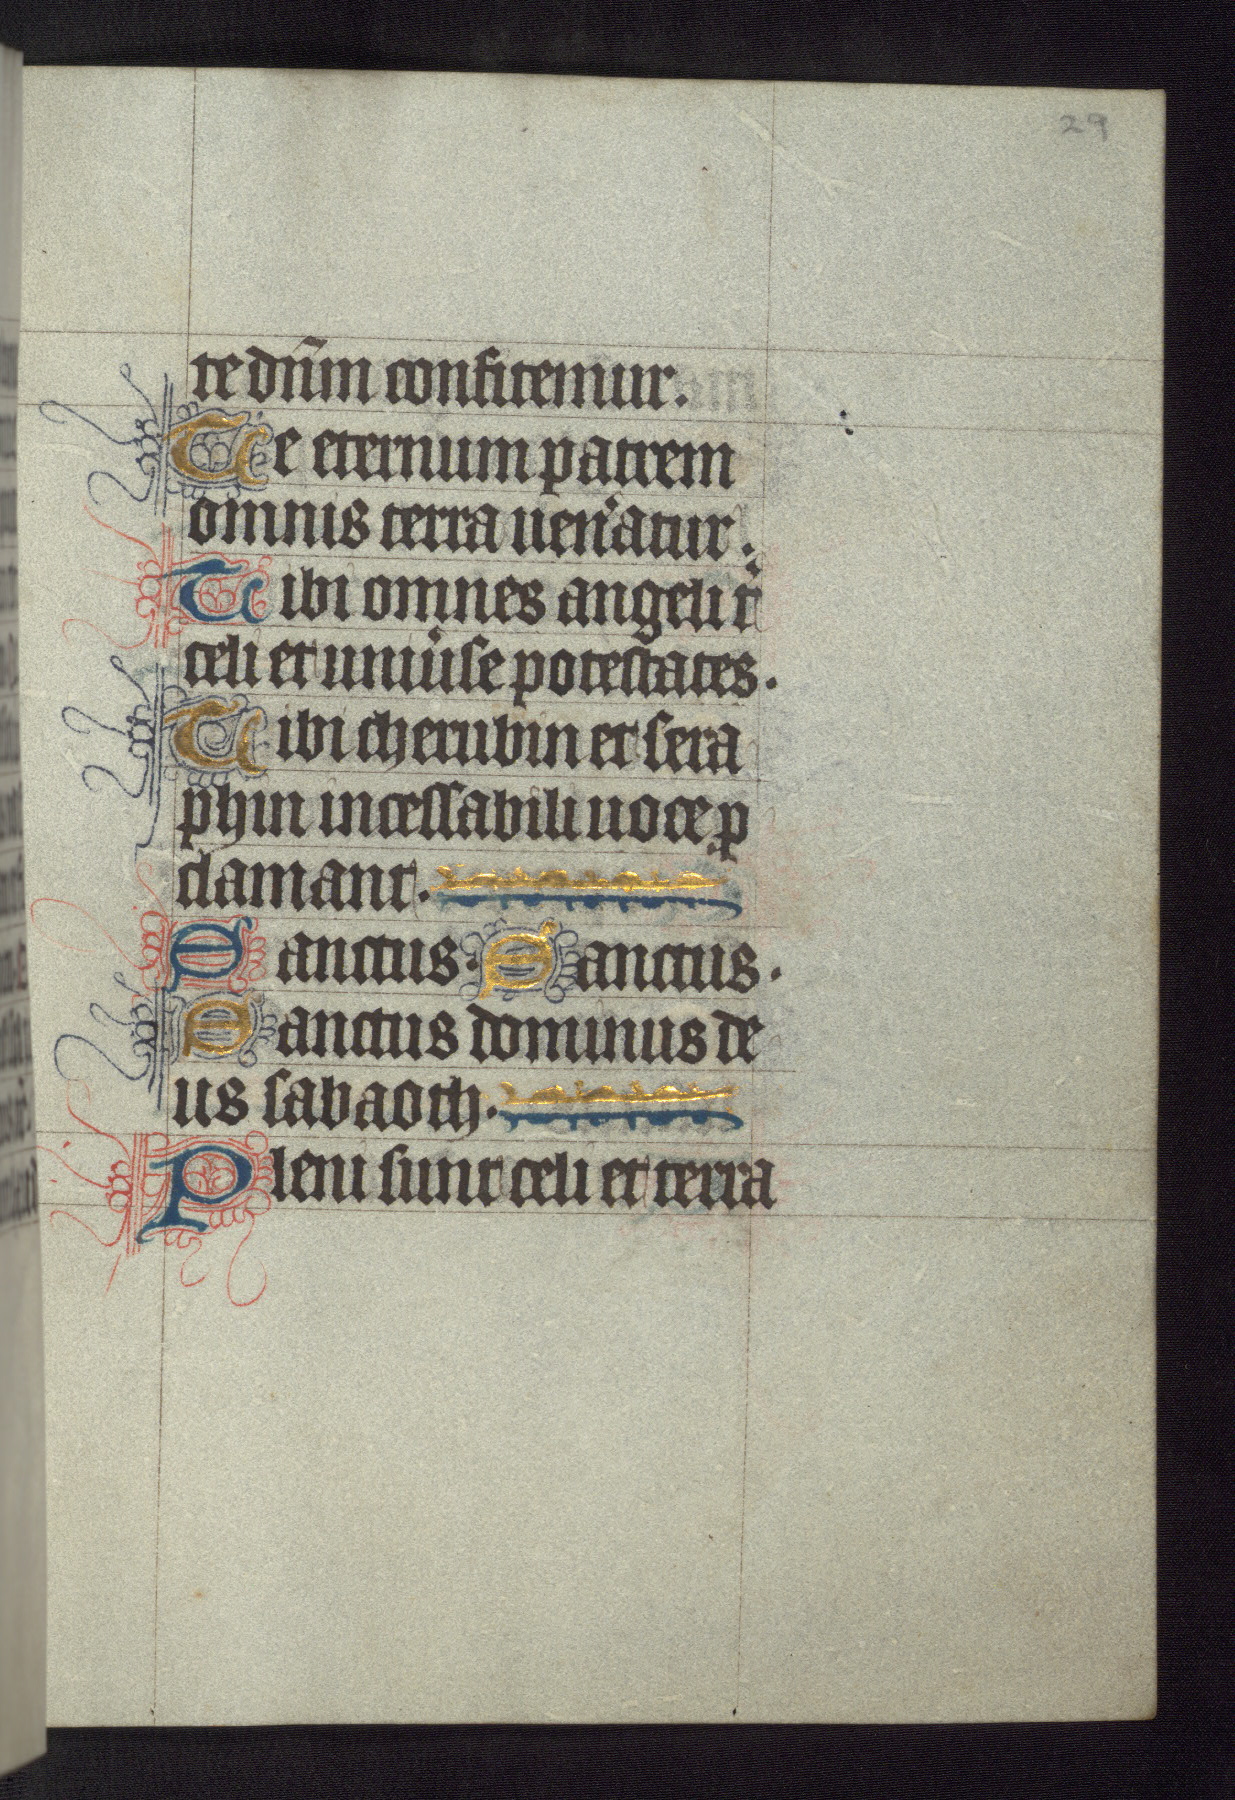 29
te dn̄m confitemur.
Te eternum patrem
omnis terra uen᾽atur.
Tibi omnes angeli t᷑
celi et uniu᾽se potestates.
Tibi cherubin et sera
phin incessabili uoce ꝓ
clamant.
Sanctus. Sanctus.
Sanctus dominus de
us sabaoth.
Pleni sunt celi et terra